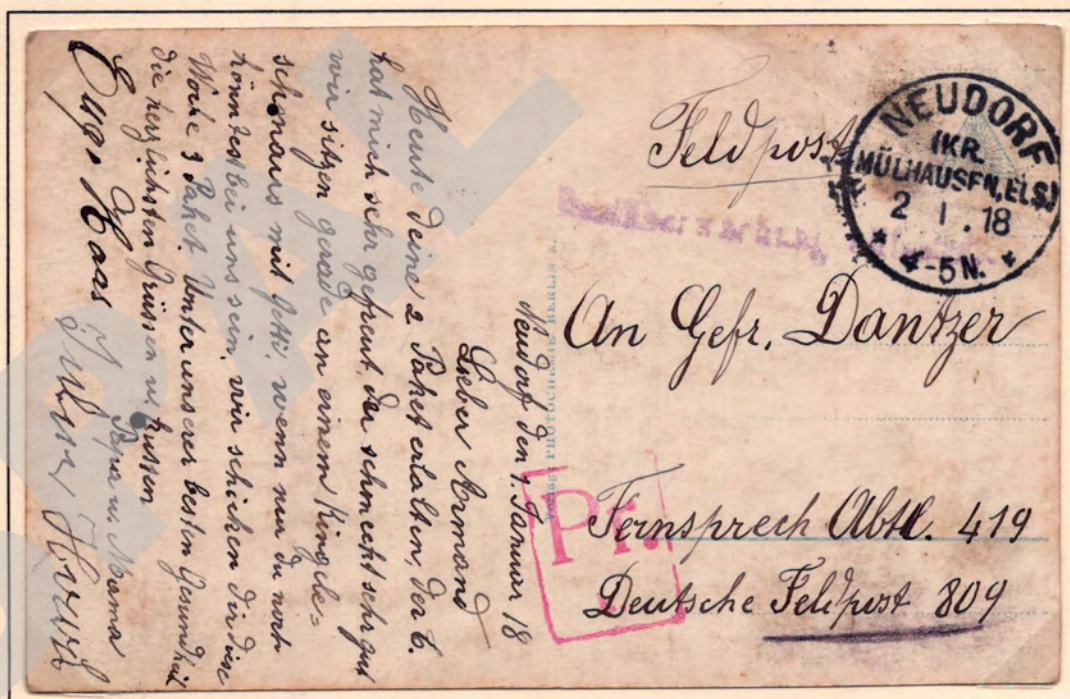 Feldpost
NEUDORF
(KR.
MÜLHAUSEN, ELS.)
2 1.18
* 4-5 N. *
An Gefr. Dantzer
Fernsprech Abtl. 419
Deutsche Feldpost 809
Pr.
Neudorf den 1. Januar 18
Lieber Armand
Heute deine 2 Paket erhalten, der
hat mich sehr gefreut, der schmeckt sehr gut
wir sitzen gerade an einem
schmauss mit wenn nur du noch
könntest bei uns sein. wir schicken dir diese
Woche 3 Paket Unter unserer besten Gesundheit
die herzlichsten Grüssen u. kussen
Papa u. Mama
Haas